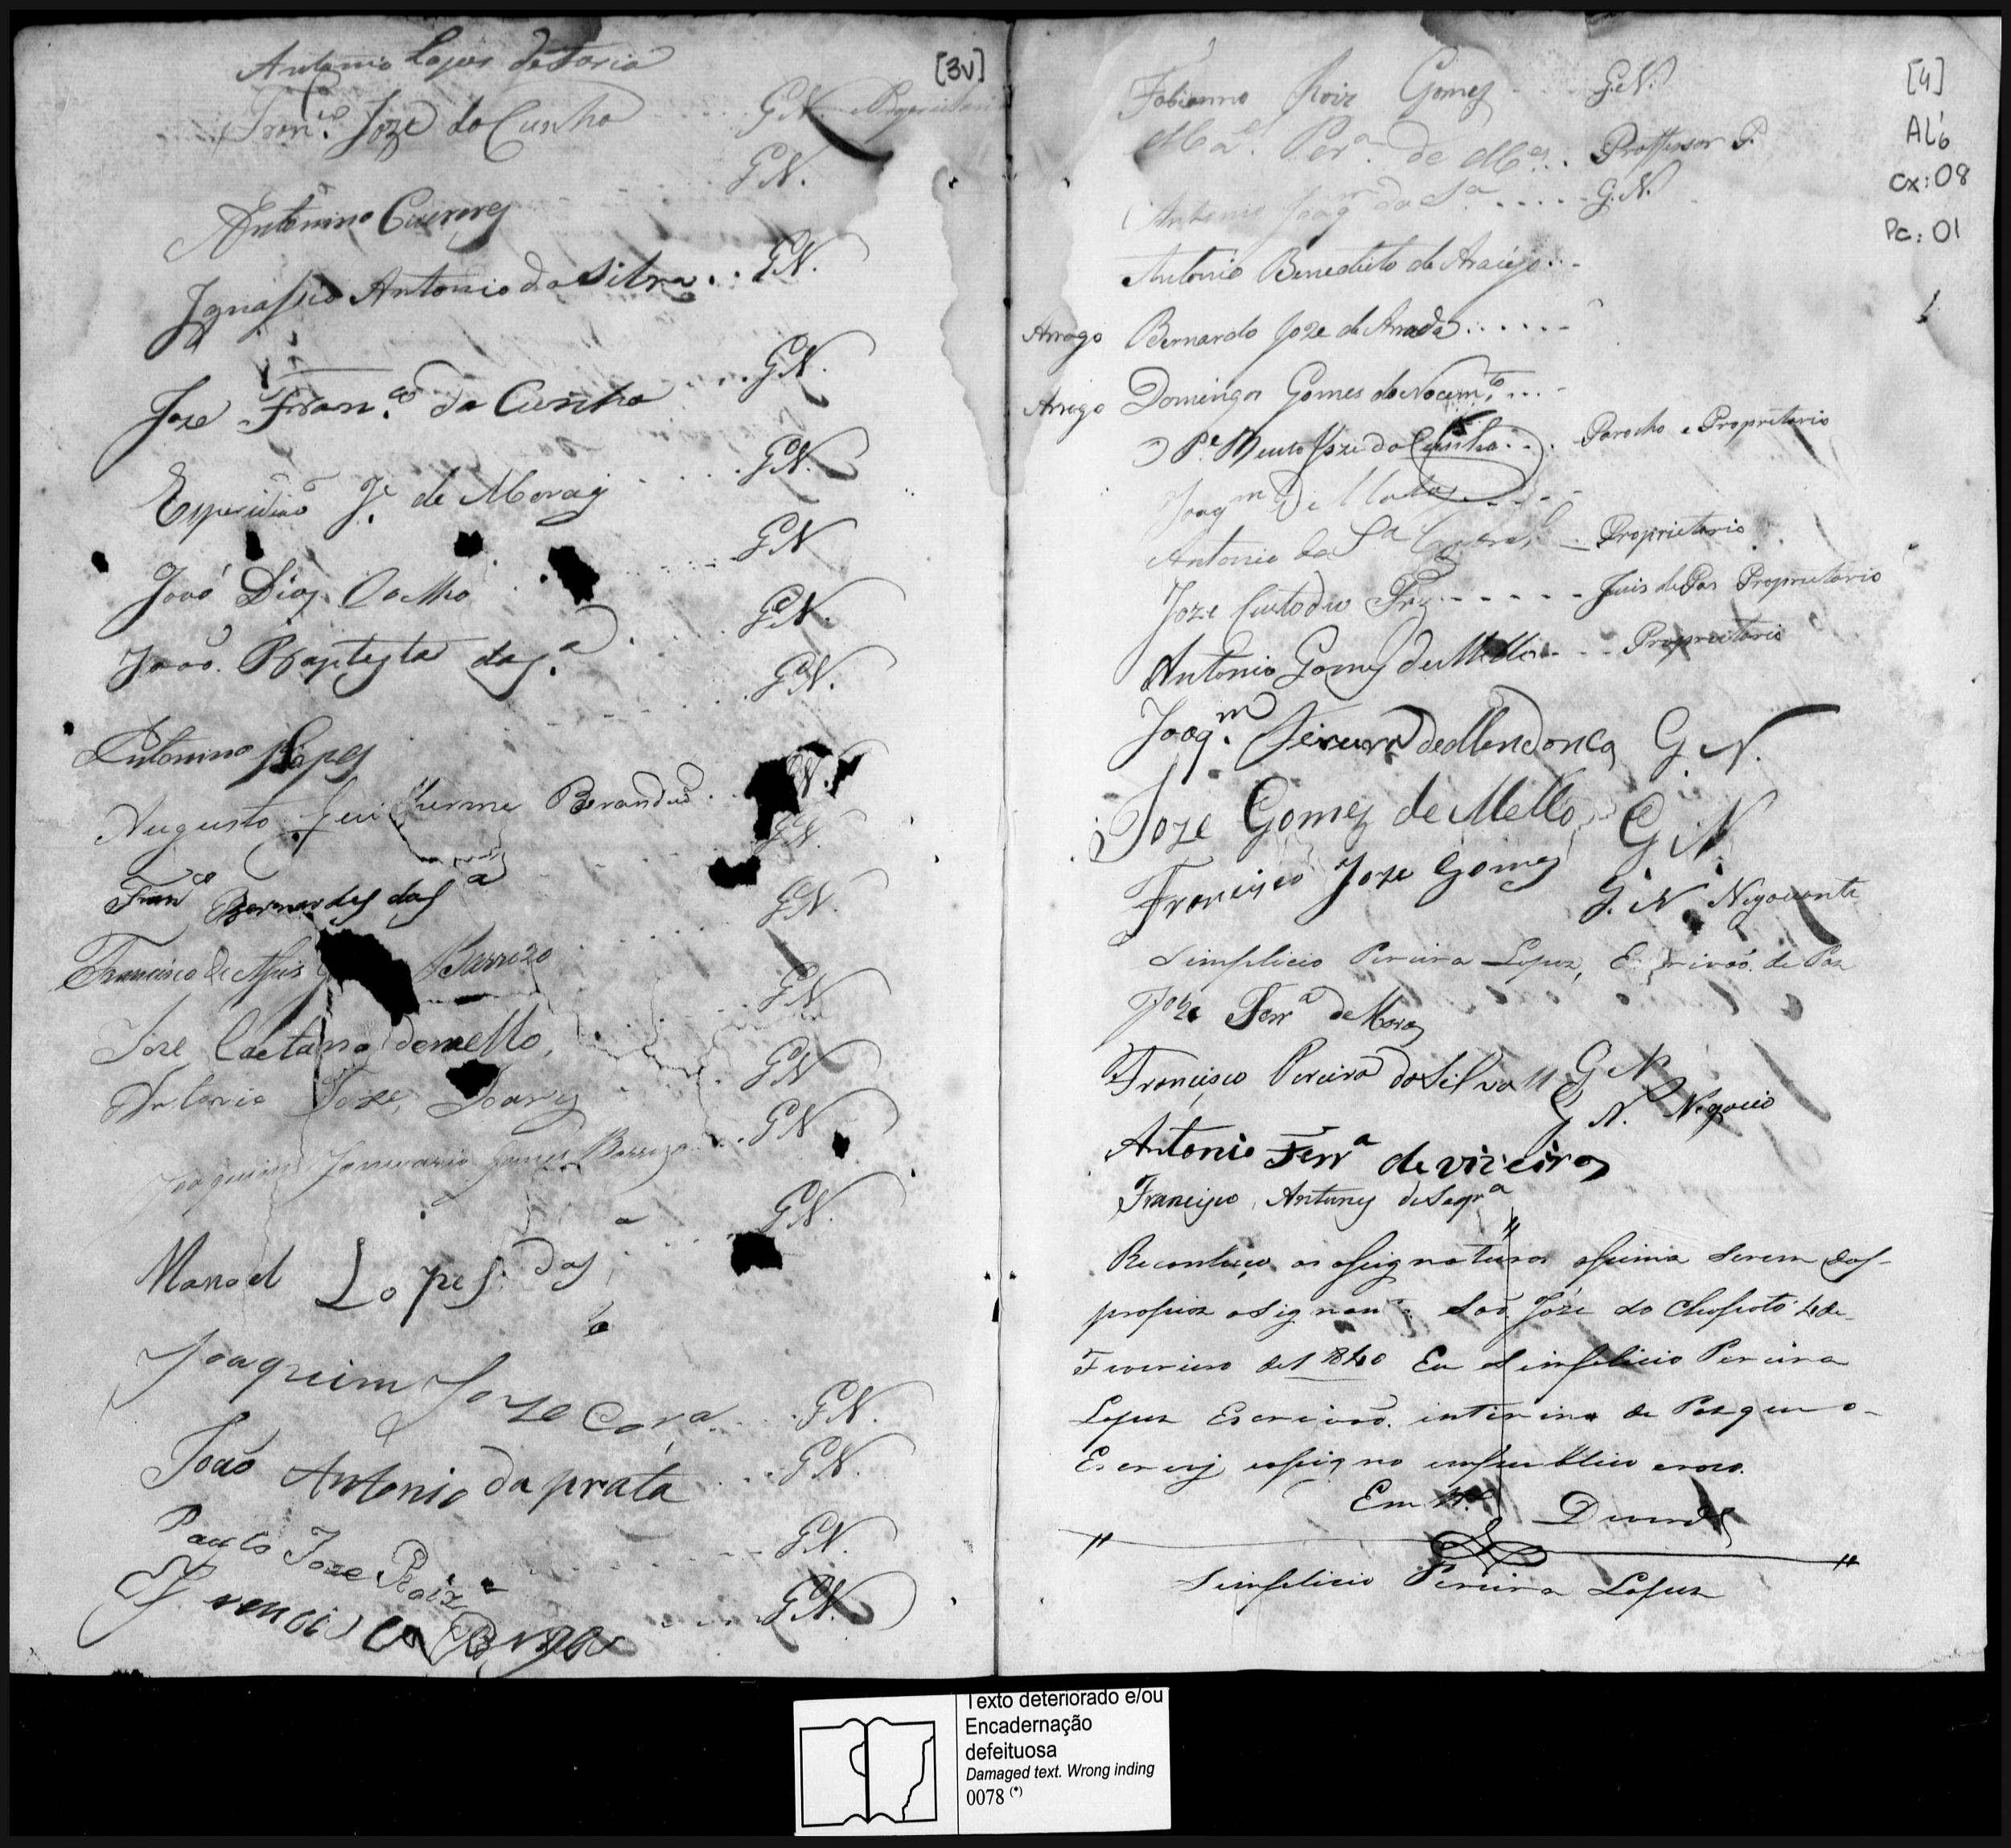 [3v]
Antonio Lopes de Faria
Fran.co Joze da Cunha G.N. Proprietari
G.N.
Antonino Guerrey
Ignassio Antonio da Silva.. G.N.
Joze Fran.co da Cunha .... G.N.
Esperidiaõ J.e de Moraiz .... G.N.
Joaõ Dias Coelho .... G.N.
Joaõ Baptista da S.a .... G.N.
G.N.
Antonino Lopes
Augusto Guilherme Brandaõ .. G.N.
G.N.
Franco Bernardes da Sa
G.N.
Francisco de Assis Barrozo
G.N.
Joze Caetano de mello,
Antonio Joze, Soares G.N.
Joaquim Januario Gomes Barrozo .. G.N.
G.N.
Manoel Lopes das
Joaquim Joze Cora.... G.N.
Joaõ Antonio da prata ... G.N.
Paulo Joze Roiz G.N.
G.N.
[4]
AL6
cx: 08
Pc: 01
Fabianno Roiz Gomes G.N.
Ma.el Per.a de Mes... Proffessor P.
Antonio Joaqm da S.a ..... G.N.
Antonio Benedicto de Araujo...
Arrogo Bernardo Joze de Arruda......
Arrogo Domingos Gomes do Nacim.to ....
O P.e Bento Joze da Cunha... Parocho e Proprietario
Joaqm de Mattos.....
Antonio da Sa Cabral Proprietario
Joze Custodio ..... Juis de Pas Proprietario
Antonio Gomes de Mello.... Proprietario
Joaq.m Pereira de Mendonca G.N.
Joze Gomes de Mello G.N.
Francisco Joze Gomes G.N Negociante
Simplicio Pereira Lopes, Escrivaõ de Paz
Joze Ferra de Moraz
Francisco Pereira da Silva G.N.
G.N. Negocio
Antonio Ferra de viveiros
Francisco Antunes de Seqra
Reconheço as assignaturas assima serem dos-
proprios asignan.es Saõ Józe do Chopotó 4 de
Fevereiro de 1840 Eu Simplicio Pereira
Lopes Escrivaõ interino de Paz que o-
Escrevy easigno empublico eraso.
Em t.o Daverd.e
Simplicio Pereira Lopes
Texto deteriorado e/ou
Encadernação
defeituosa
Damaged text. Wrong inding
0078 (*)